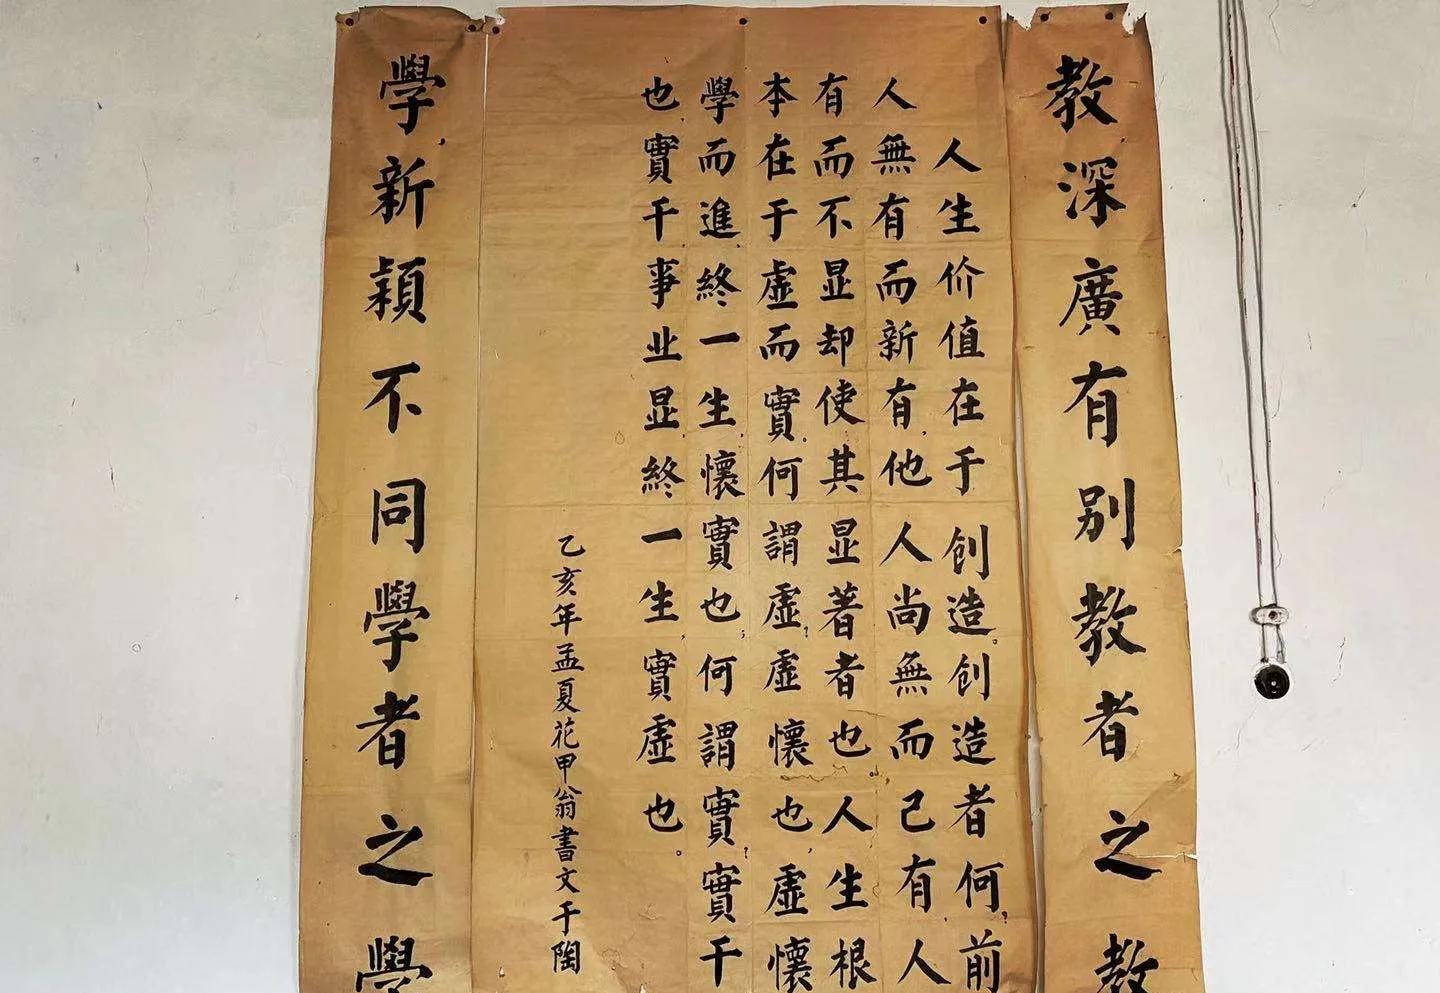 教深廣有别教者之教
人生价值在于創造。創造者何,前
人無有而新有,他人尚無而己有,人
有而不显却使其显著者也。人生根
本在于虚而實。何謂虚?虚懷也,虚懷
學而進,終一生,懷實也;何謂實?實干
也,實干事业显,終一生,實虚也。
乙亥年孟夏花甲翁書文于陶
學,新穎不同學者之學